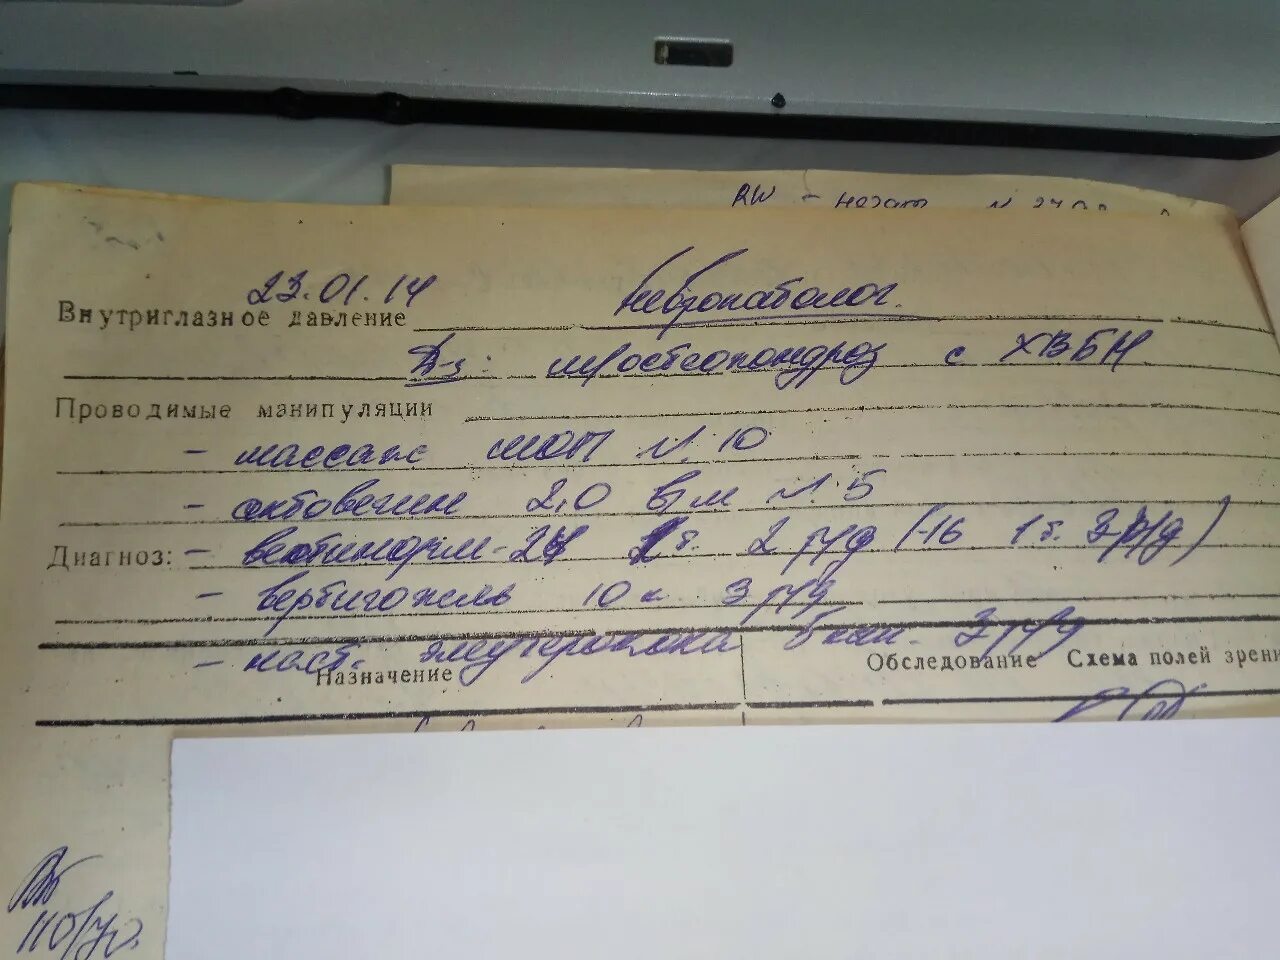 RW - негат
23.01.14 Невропатолог.
Внутриглазное давление
Д-з: ш/остеохондроз с ХВБН
Проводимые манипуляции
- массаж ШОП N. 10
- актовегин 2,0 в/м N. 5
Диагноз: - вестинорм-24 1т. 2 р/д (-16 1т. 3 р/д)
- вертигохель 10 к 3 р/д
- наст. элеутерококка кап. 3 р/д
Назначение Обследование Схема полей зрени
110/70.